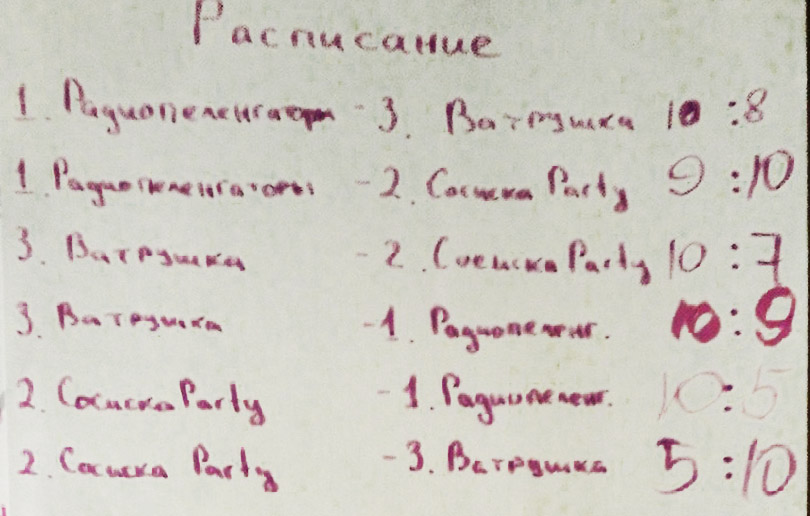 Расписание
1. Радиопеленгаторы - 3. Ватрушка 10 : 8
1. Радиопеленгаторы - 2. Сосиска Party 9 : 10
3. Ватрушка - 2. Сосиска Party 10 : 7
3. Ватрушка - 1. Радиопеленг. 10 : 9
2. Сосиска Party - 1. Радиопеленг. 10 : 5
2. Сосиска Party - 3. Ватрушка 5 : 10